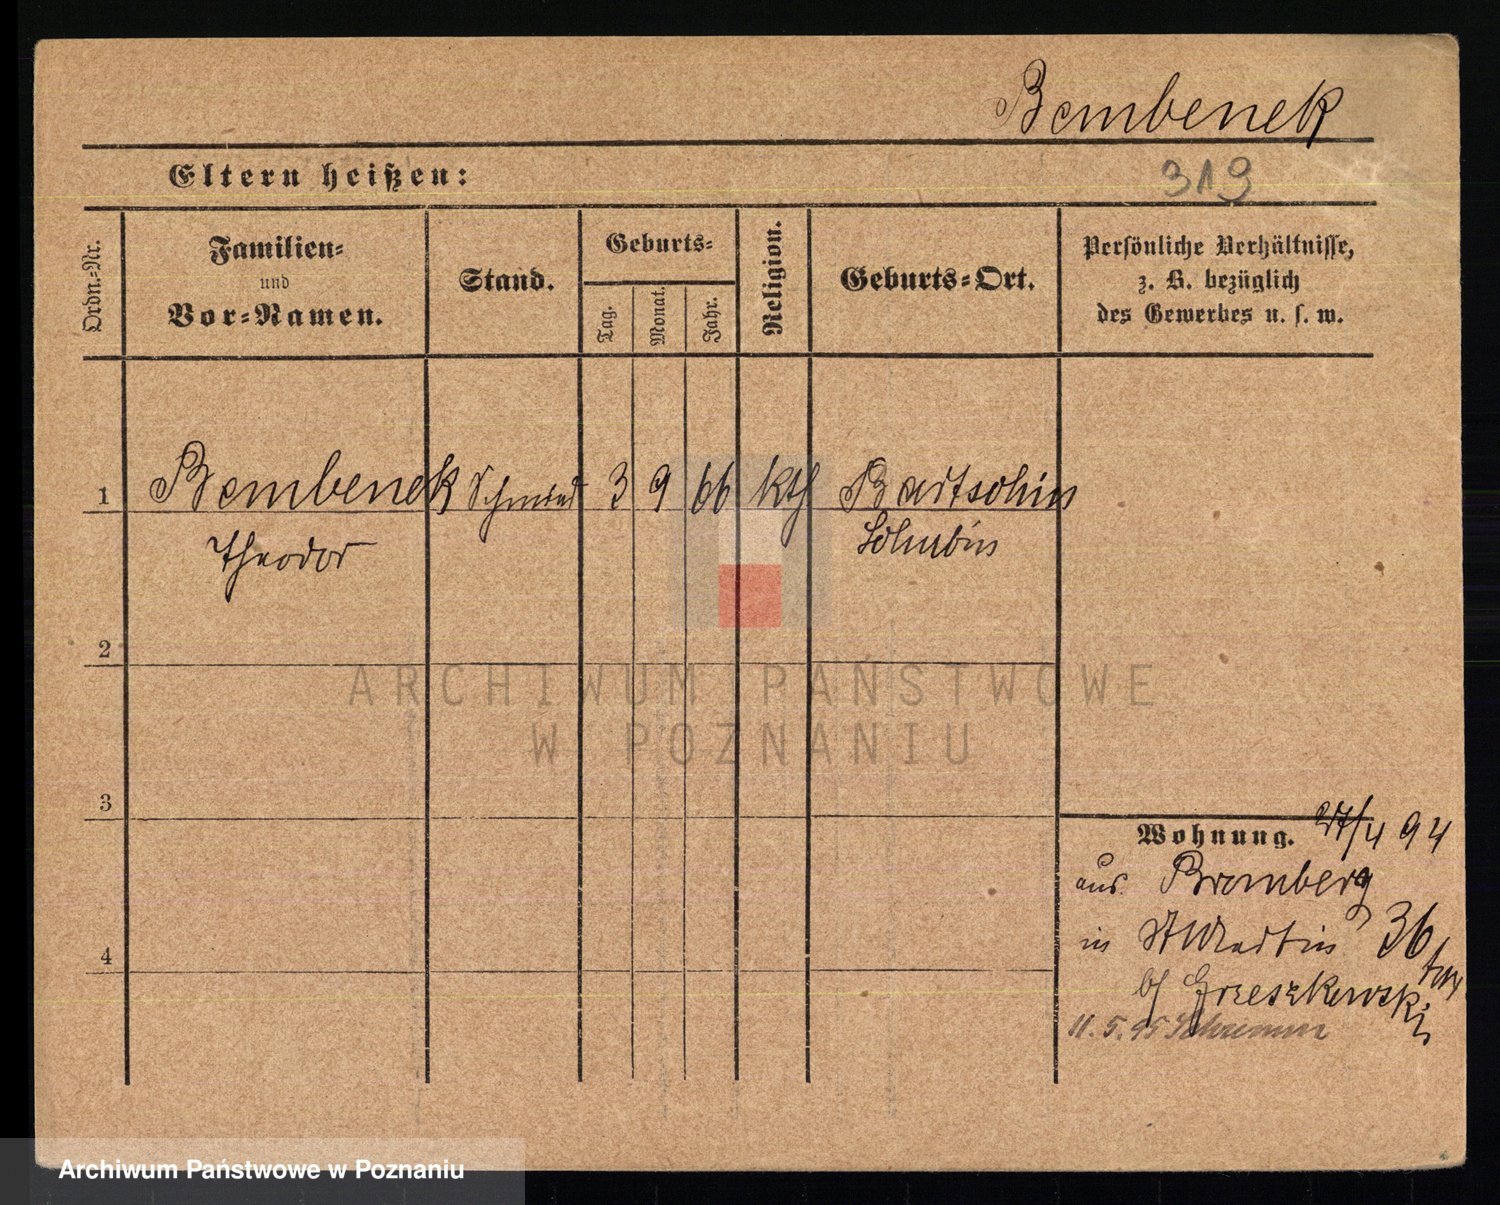 Bembenek
Eltern heißen:
319
Ordn.-Nr.
Familien-
und
Vor-Namen.
Stand.
Geburts-
Tag.
Monat.
Jahr.
Religion.
Geburts-Ort.
Persönliche Verhältnisse,
z. B. bezüglich
des Gewerbes u. s. w.
1
Bembenek Schmied 3 9 66 kth Bartschin
Theodor Schubin
2
ARCHIWUM PAŃSTWOWE
W POZNANIU
3
Wohnung. 27/4 94
aus Bromberg
4
in St Martin 36
bf Grzeszkowski
11. 5. 95
Archiwum Państwowe w Poznaniu